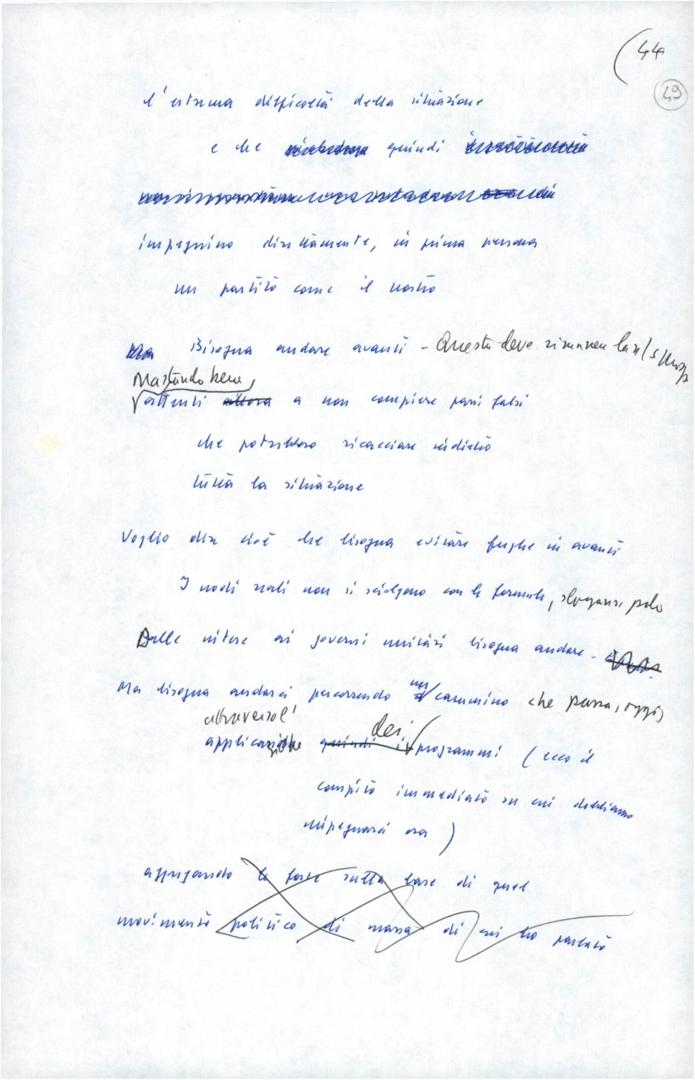 (44
49
l'estrema difficoltà della situazione
e che quindi
impegnino direttamente, in prima persona
un partito come il nostro
Ma Bisogna andare avanti - Questa deve rimanere la
stando bene,
attenti allora a non compiere passi falsi
che potrebbero ricacciare indietro
tutta la situazione
Voglio dire cioè che bisogna evitare fughe in avanti
I nodi reali non si sciolgono con le formule,
Dalle intese ai governi unitari bisogna andare -
Ma bisogna andarci percorrendo un cammino che passa, oggi,
attraverso l'
applicazione quindi dei programmi (ecco il
compito immediato su cui dobbiamo
impegnarci ora)
appoggiando le forze sulla base di quel
movimento politico di massa di cui ho parlato